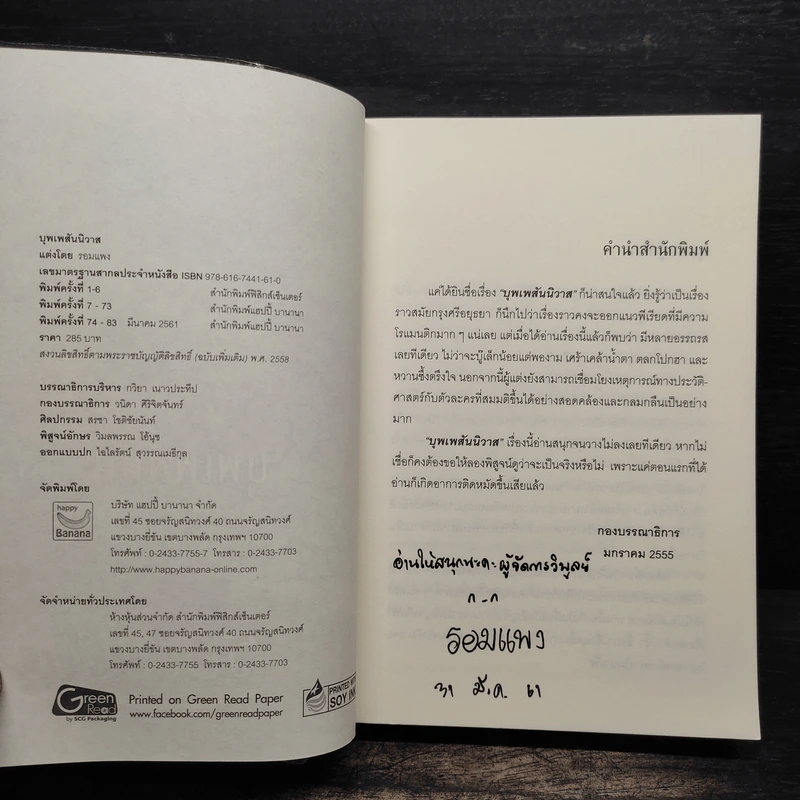 บุพเพสันนิวาส
แต่งโดย รอมแพง
เลขมาตรฐานสากลประจำหนังสือ ISBN 978-616-7441-61-0
พิมพ์ครั้งที่ 1-6 สำนักพิมพ์ฟิสิกส์เซ็นเตอร์
พิมพ์ครั้งที่ 7 - 73 สำนักพิมพ์แฮปปี้ บานานา
พิมพ์ครั้งที่ 74 - 83 มีนาคม 2561 สำนักพิมพ์แฮปปี้ บานานา
ราคา 285 บาท
สงวนลิขสิทธิ์ตามพระราชบัญญัติลิขสิทธิ์ (ฉบับเพิ่มเติม) พ.ศ. 2558
บรรณาธิการบริหาร กวิยา เนาวประทีป
กองบรรณาธิการ วนิดา ศิริจิตจันทร์
ศิลปกรรม สรชา โชติชัยนันท์
พิสูจน์อักษร วิมลพรรณ โอ้นุช
ออกแบบปก ใจไลรัตน์ สุวรรณเมธีกุล
จัดพิมพ์โดย
happy
Banana
บริษัท แฮปปี้ บานานา จำกัด
เลขที่ 45 ซอยจรัญสนิทวงศ์ 40 ถนนจรัญสนิทวงศ์
แขวงบางยี่ขัน เขตบางพลัด กรุงเทพฯ 10700
โทรศัพท์ : 0-2433-7755-7 โทรสาร : 0-2433-7703
http://www.happybanana-online.com
จัดจำหน่ายทั่วประเทศโดย
ห้างหุ้นส่วนจำกัด สำนักพิมพ์ฟิสิกส์เซ็นเตอร์
เลขที่ 45, 47 ซอยจรัญสนิทวงศ์ 40 ถนนจรัญสนิทวงศ์
แขวงบางยี่ขัน เขตบางพลัด กรุงเทพฯ 10700
โทรศัพท์ : 0-2433-7755 โทรสาร : 0-2433-7703
Green
Read
by SCG Packaging
Printed on Green Read Paper
www.facebook.com/greenreadpaper
PRINTED WITH
SOY INK
คำนำสำนักพิมพ์
แค่ได้ยินชื่อเรื่อง "บุพเพสันนิวาส" ก็น่าสนใจแล้ว ยิ่งรู้ว่าเป็นเรื่อง
ราวสมัยกรุงศรีอยุธยา ก็นึกไปว่าเรื่องราวคงจะออกแนวพีเรียดที่มีความ
โรแมนติกมาก ๆ แน่เลย แต่เมื่อได้อ่านเรื่องนี้แล้วก็พบว่า มีหลายอรรถรส
เลยทีเดียว ไม่ว่าจะบู๊เล็กน้อยแต่พองาม เศร้าเคล้าน้ำตา ตลกโปกฮา และ
หวานซึ้งตรึงใจ นอกจากนี้ผู้แต่งยังสามารถเชื่อมโยงเหตุการณ์ทางประวัติ-
ศาสตร์กับตัวละครที่สมมติขึ้นได้อย่างสอดคล้องและกลมกลืนเป็นอย่าง
มาก
"บุพเพสันนิวาส" เรื่องนี้อ่านสนุกจนวางไม่ลงเลยทีเดียว หากไม่
เชื่อก็คงต้องขอให้ลองพิสูจน์ดูว่าจะเป็นจริงหรือไม่ เพราะแค่ตอนแรกที่ได้
อ่านก็เกิดอาการติดหมัดขึ้นเสียแล้ว
กองบรรณาธิการ
มกราคม 2555
อ่านให้สนุกนะคะ ผู้จัดการวิพูลย์
^_^
รอมแพง
31 มี.ค. 61